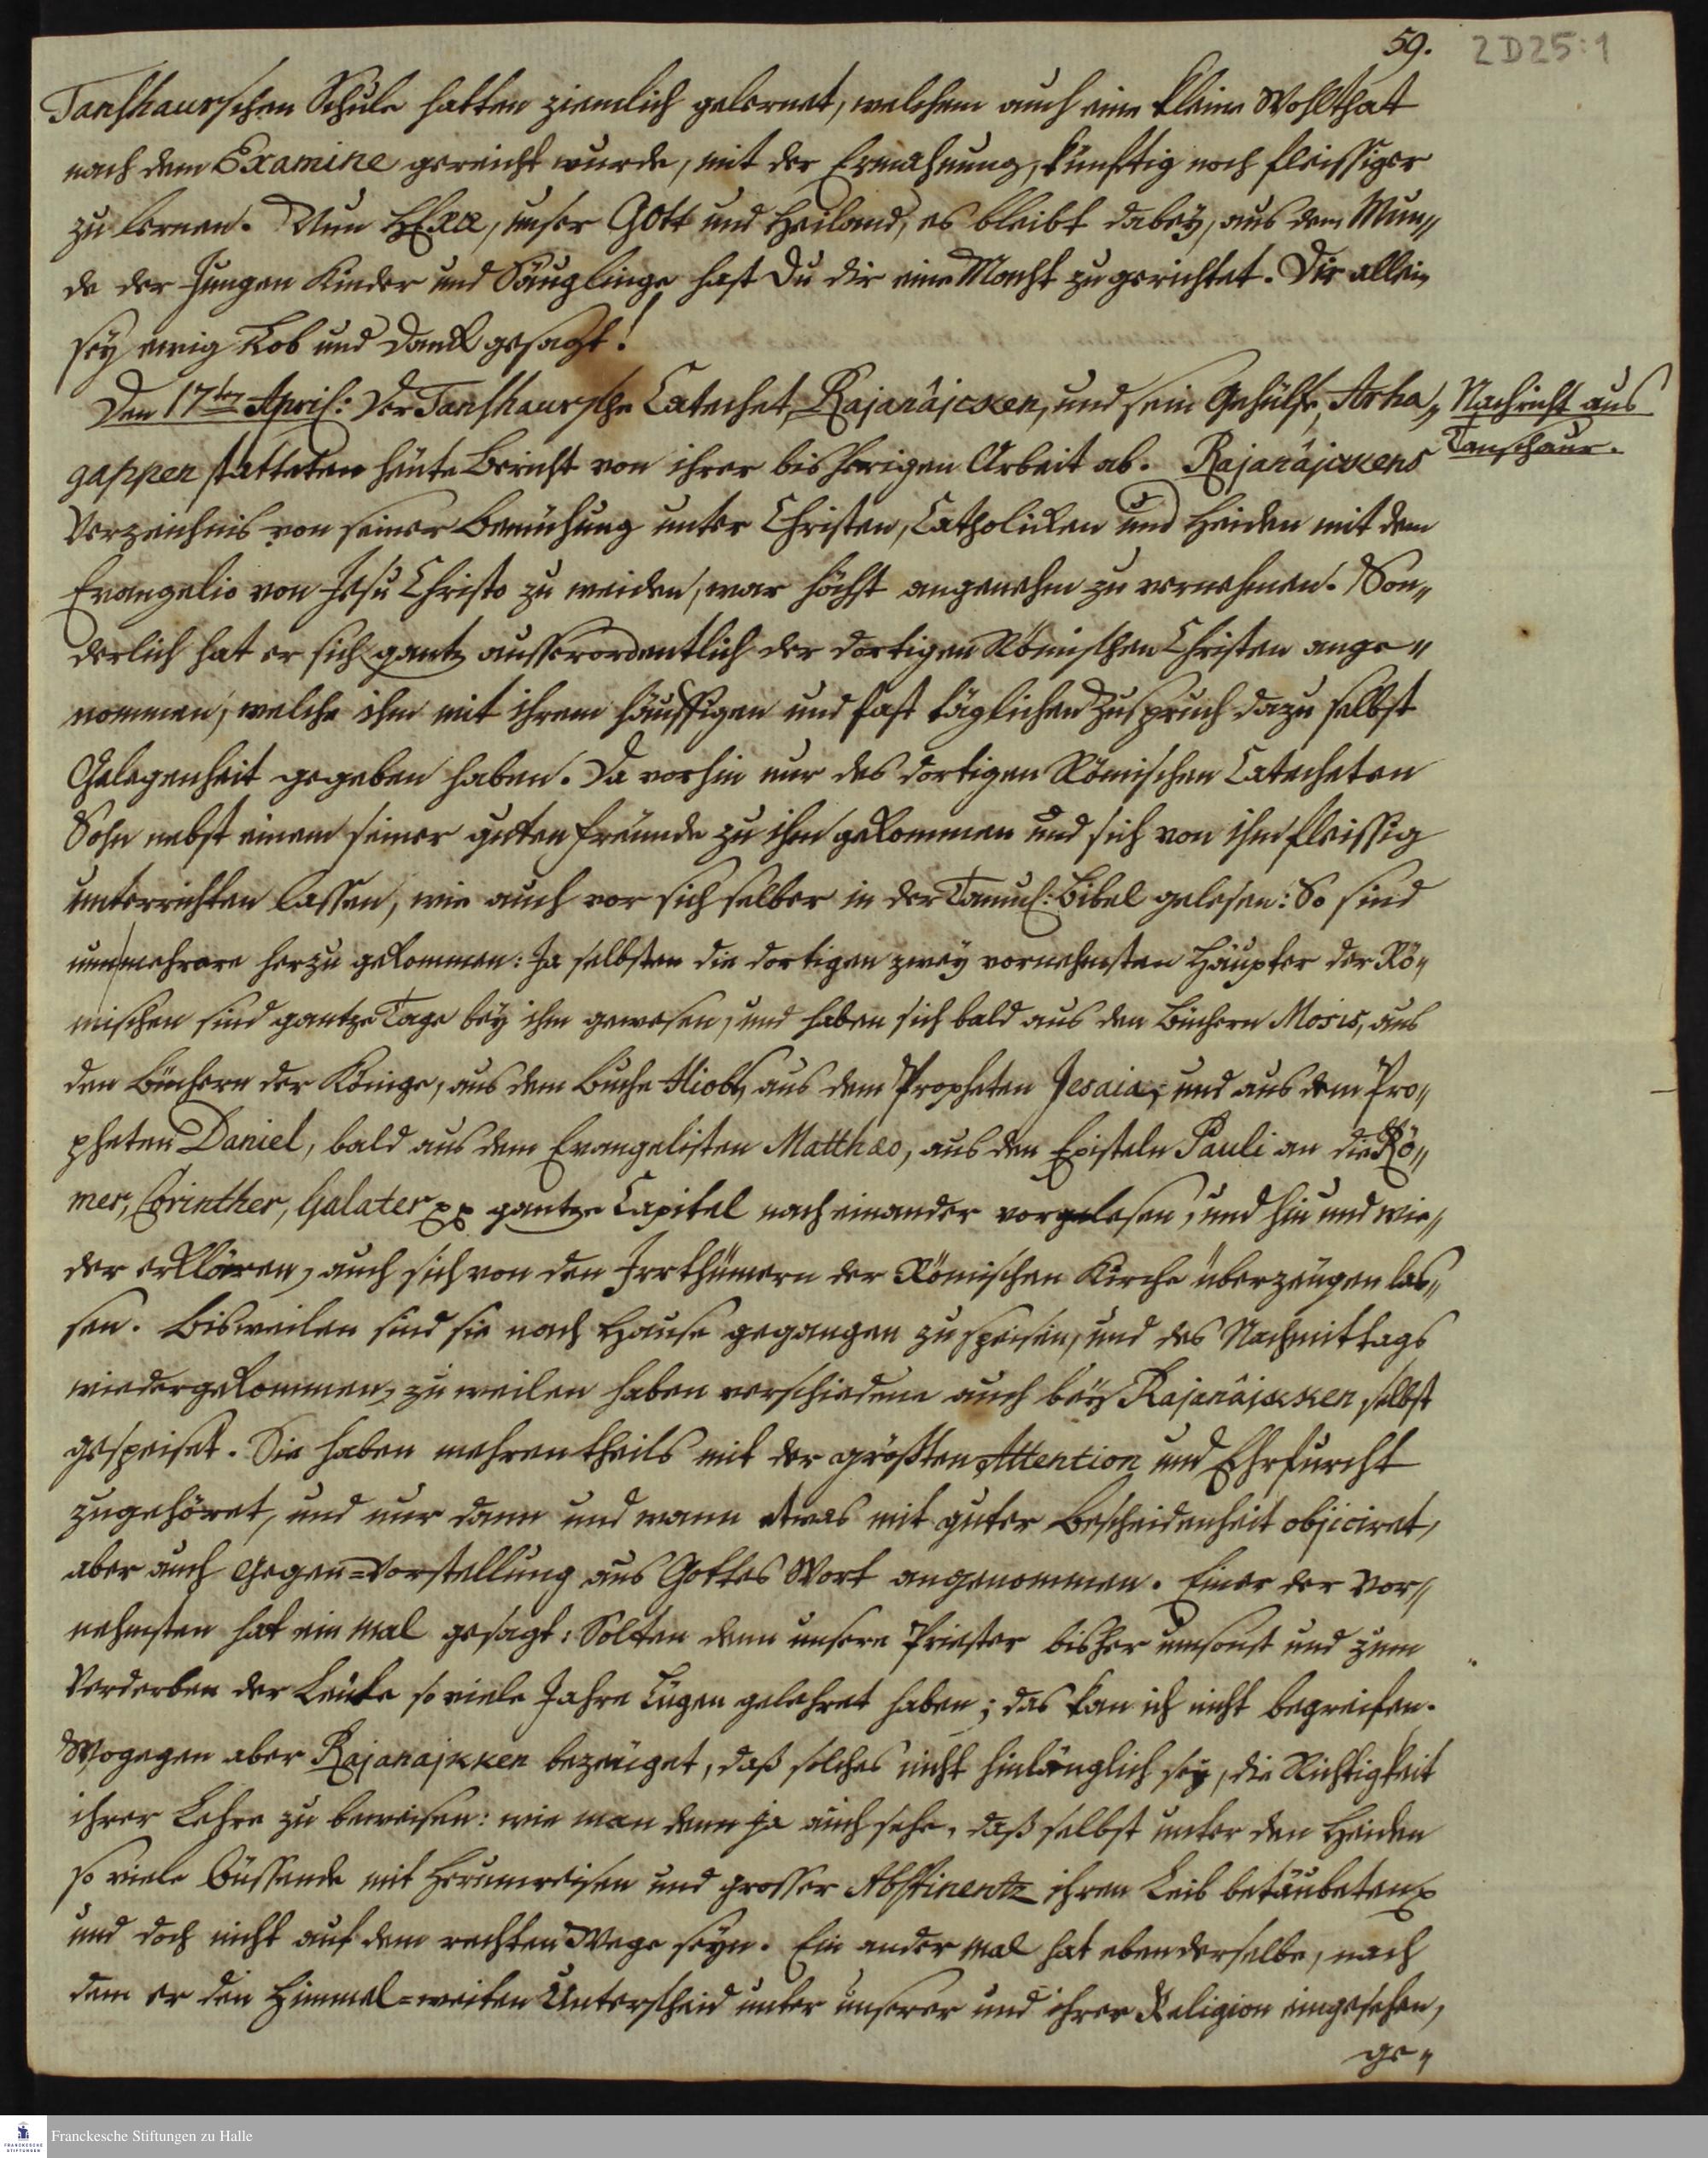 59.
2D25:1
Tanshaurschen Schule hatten ziemlich gelernet, welchem auch eine kleine Wohlthat
nach dem Examine gereicht wurde, mit der Ermahnung, künftig noch fleissiger
zu lernen. Nun HErr, unser GOtt und Heiland, es bleibt dabeÿ, aus dem Mun„
de der Jungen Kinder und Säuglinge hast Du dir eine Macht zugerichtet. Dir allein
seÿ ewig Lob und Danck gesagt!
Den 17ten April: Der Tanshaursche Catechet, Rajanâjcken, und sein Gehülfe, Arha„
Nachricht aus
Tanschaur.
gappen statteten heute Bericht von ihrer bisherigen Arbeit ab. Rajanâjckens
Verzeichnis von seiner Bemühung unter Christen, Catholicken und Heiden mit dem
Evangelio von Jesu Christo zu weiden, war höchst angenehm zu vernehmen. Son„
derlich hat er sich gantz ausserordentlich der dortigen Römischen Christen ange„
nommen, welche ihm mit ihrem häuffigen und fast täglichen Zuspruch dazu selbst
Gelegenheit gegeben haben. Da vorhin nur des dortigen Römischen Catecheten
Sohn nebst einem seiner guten Freunde zu ihm gekommen und sich von ihm fleissig
unterrichten lassen, wie auch vor sich selber in der Tamul: Bibel gelesen: So sind
nun mehrere herzu gekommen: Ja selbsten die dortigen zweÿ vornehmsten Häupter der Rö„
mischen sind gantze Tage beÿ ihm gewesen, und haben sich bald aus den Büchern Mosis, aus
den Büchern der Könige, aus dem Buche Hiobs, aus dem Propheten Jesaia, und aus dem Pro„
pheten Daniel, bald aus dem Evangelisten Matthæo, aus den Episteln Pauli an die Rö„
mer, Corinther, Galater pp gantze Capitel nach einander vorgelesen, und hin und wie„
der erklären, auch sich von den Irrthümern der Römischen Kirche überzeugen las„
sen. Bisweilen sind sie nach Hause gegangen zu speisen, und des Nachmittags
wiedergekommen, zu weilen haben verschiedene auch beÿ Rajanâjcken selbst
gespeiset. Sie haben mehrentheils mit der größten Attention und Ehrfurcht
zugehöret, und nur dann und wann etwas mit guter Bescheidenheit objiciret,
aber auch Gegen=Vorstellung aus Gottes Wort angenommen. Einer der Vor„
nehmsten hat ein mal gesagt: Solten denn unsere Priester bisher umsonst und zum
Verderben der Leute so viele Jahre Lügen gelehret haben; das kan ich nicht begreifen.
Wogegen aber Rajanajkken bezeuget, daß solches nicht hinlänglich seÿ, die Richtigkeit
ihrer Lehre zu beweisen: wie man denn ja auch sehe, daß selbst unter den Heiden
so viele Büssende mit Herumreisen und grosser Abstinentz ihren Leib betäubeten
und doch nicht auf dem rechten Wege seÿn. Ein ander mal hat eben derselbe, nach
dem er den Himmel=weiten Unterscheid unter unserer und ihrer Religion eingesehen,
ge„
Franckesche Stiftungen zu Halle